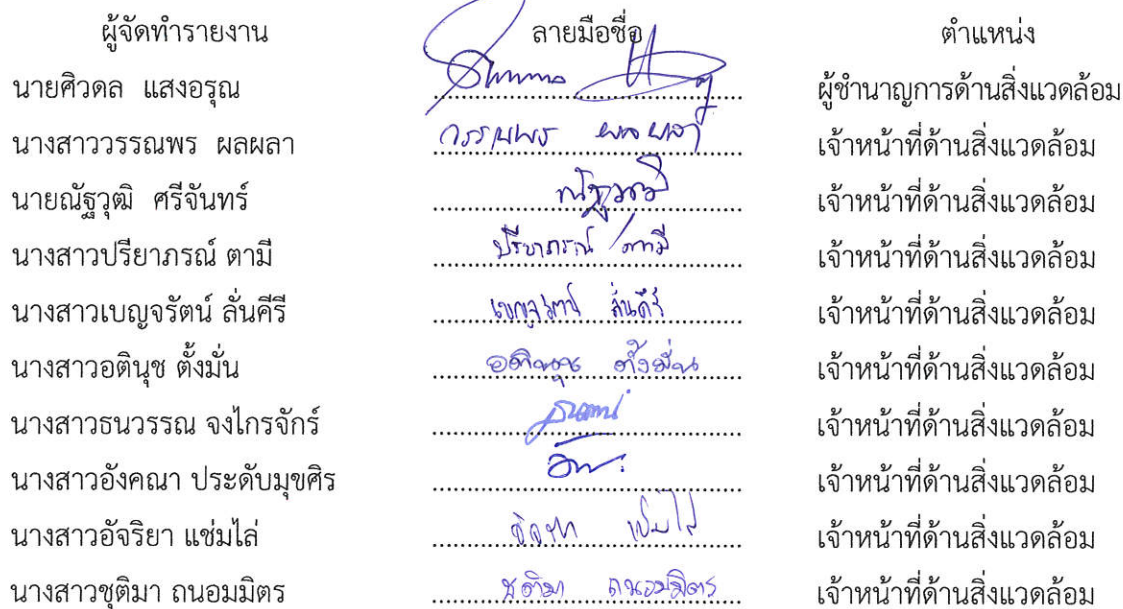 ผู้จัดทำรายงาน ลายมือชื่อ ตำแหน่ง
นายศิวดล แสงอรุณ ผู้ชำนาญการด้านสิ่งแวดล้อม
นางสาววรรณพร ผลผลา วรรณพร ผลผลา เจ้าหน้าที่ด้านสิ่งแวดล้อม
นายณัฐวุฒิ ศรีจันทร์ ณัฐวุฒิ เจ้าหน้าที่ด้านสิ่งแวดล้อม
นางสาวปรียาภรณ์ ตามี ปรียาภรณ์ ตามี เจ้าหน้าที่ด้านสิ่งแวดล้อม
นางสาวเบญจรัตน์ ลั่นคีรี เบญจรัตน์ ลั่นคีรี เจ้าหน้าที่ด้านสิ่งแวดล้อม
นางสาวอตินุช ตั้งมั่น อตินุช ตั้งมั่น เจ้าหน้าที่ด้านสิ่งแวดล้อม
นางสาวธนวรรณ จงไกรจักร์ เจ้าหน้าที่ด้านสิ่งแวดล้อม
นางสาวอังคณา ประดับมุขศิร เจ้าหน้าที่ด้านสิ่งแวดล้อม
นางสาวอัจริยา แช่มไล่ อัจริยา แช่มไล่ เจ้าหน้าที่ด้านสิ่งแวดล้อม
นางสาวชุติมา ถนอมมิตร ชุติมา ถนอมมิตร เจ้าหน้าที่ด้านสิ่งแวดล้อม